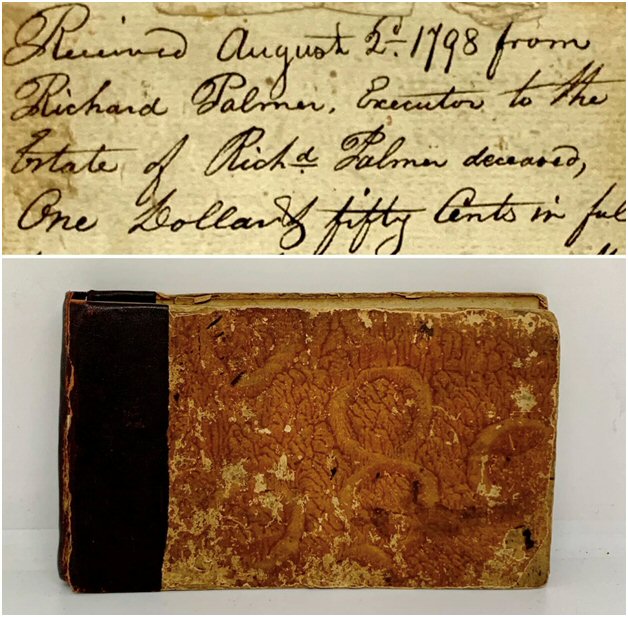 Received August 2d. 1798 from
Richard Palmer, Executor to the
Estate of Richd Palmer deceased,
One Dollar & fifty Cents in ful